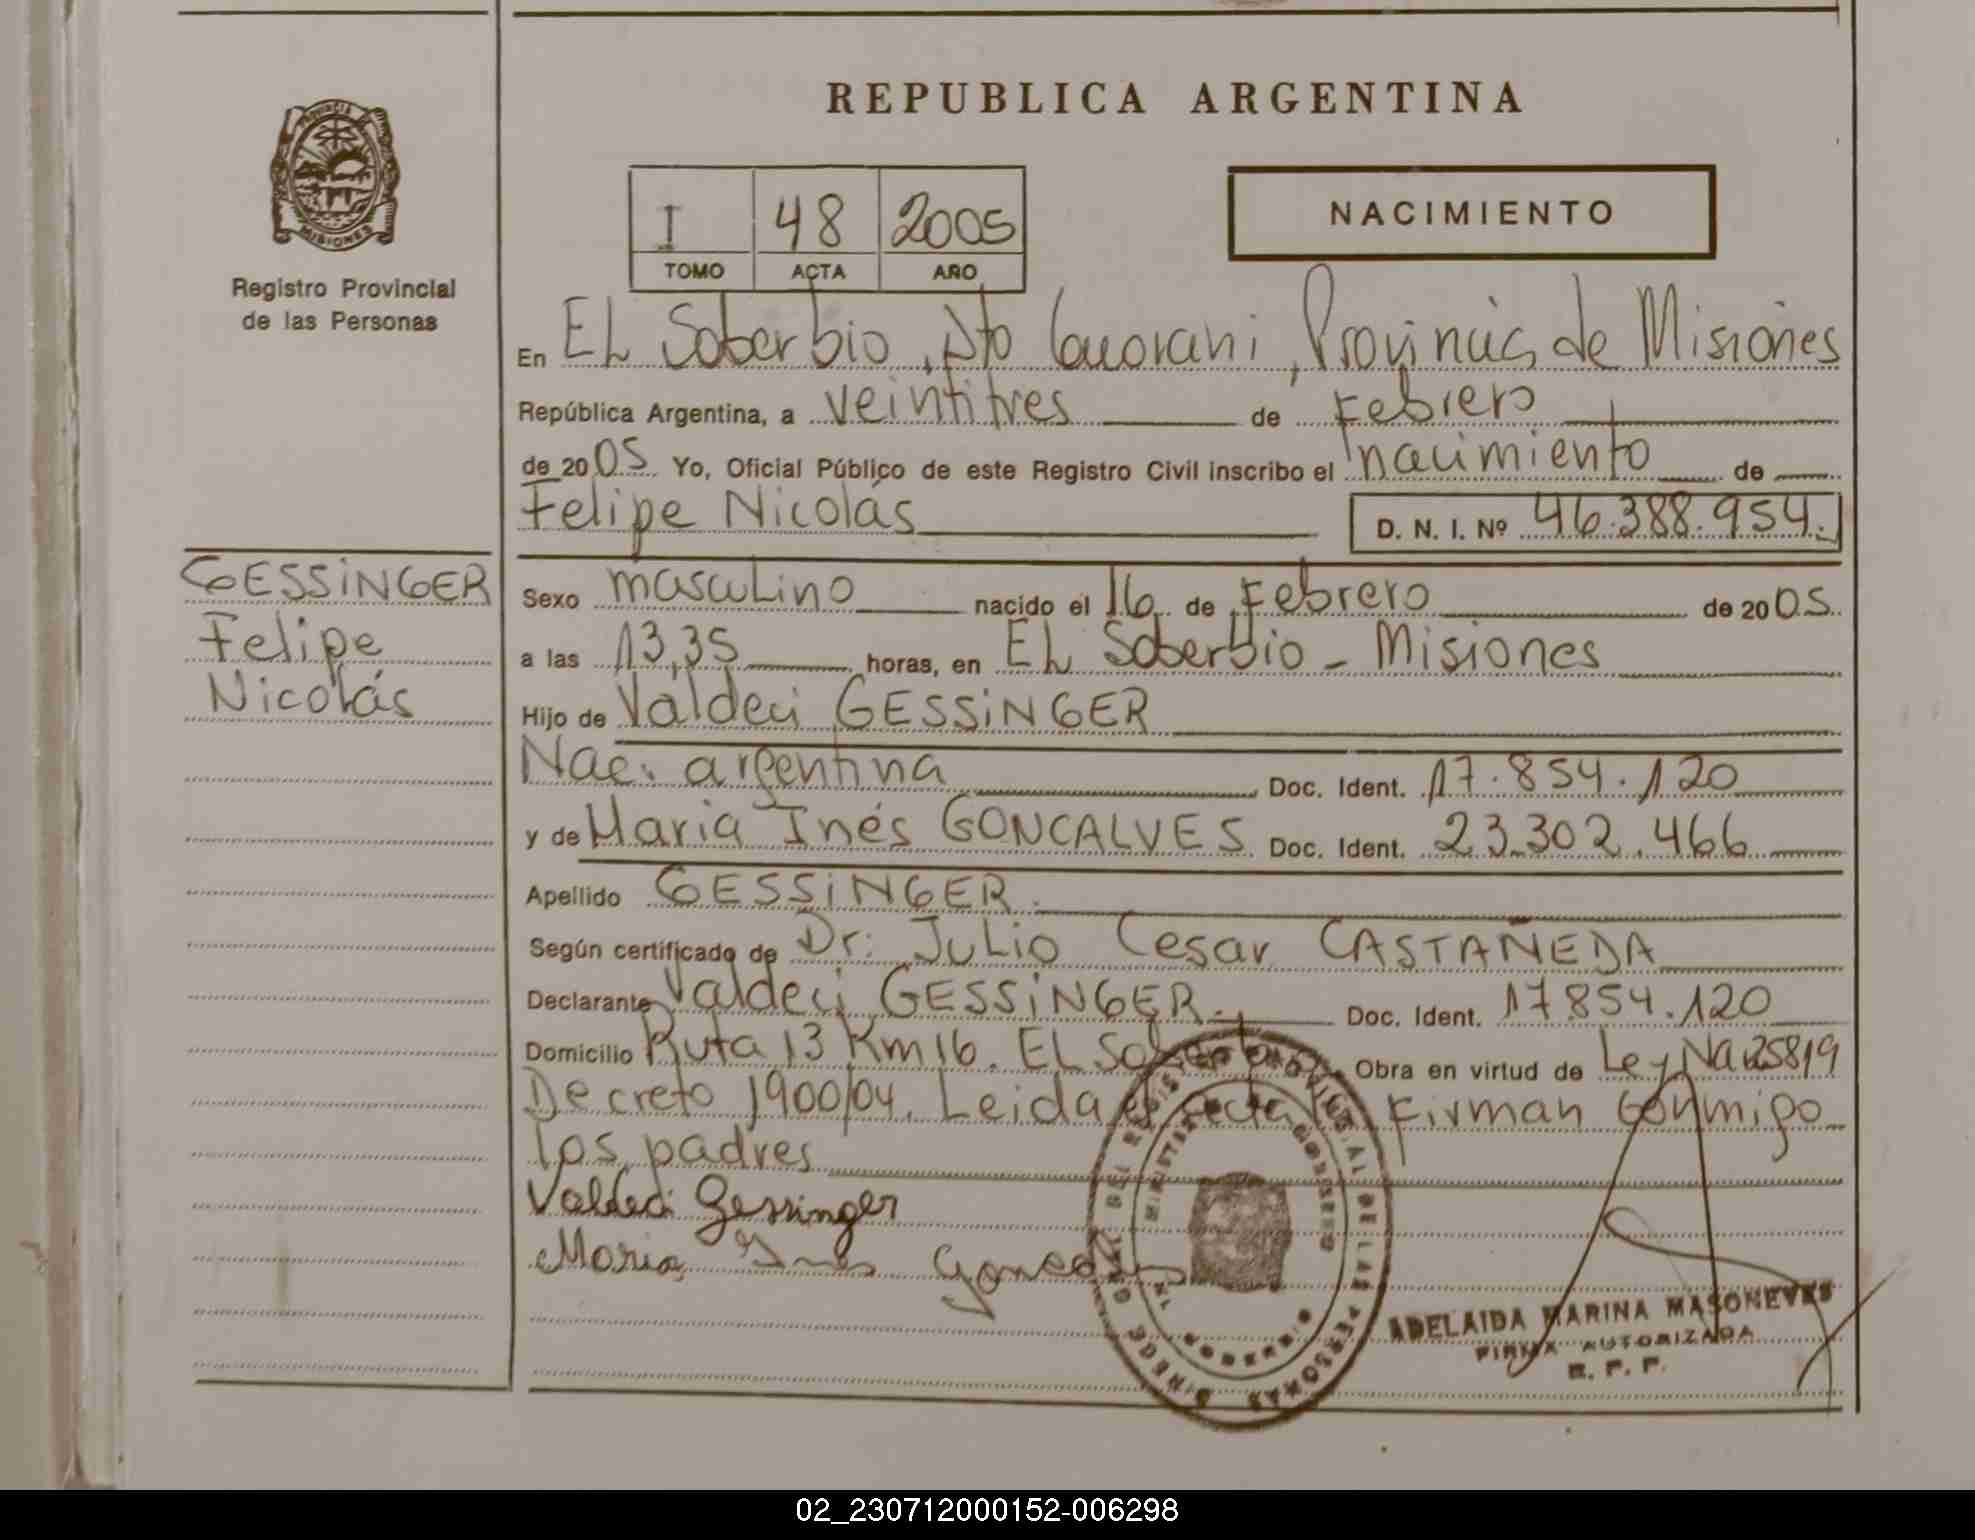 REPUBLICA ARGENTINA
PROVINCIA
MISIONES
Registro Provincial
de las Personas
I 48 2005
TOMO ACTA AÑO
NACIMIENTO
En EL Soberbio, Dto Guarani, Provincia de Misiones
República Argentina, a veintitres de Febrero
de 2005 Yo, Oficial Público de este Registro Civil inscribo el nacimiento de
Felipe Nicolás D. N. I. Nº 46.388.954.
GESSiNGER
Felipe
Nicolás
Sexo mascuLino nacido el 16 de Febrero de 2005
a las 13,35 horas, en EL Soberbio - Misiones
Hijo de Valdeci GESSiNGER
Nac. argentina Doc. Ident. 17.854.120
y de Maria Inés GONCALVES Doc. Ident. 23.302.466
Apellido GESSiNGER.
Según certificado de Dr: JuLio Cesar CASTAÑEDA
Declarante Valdeci GESSiNGER. Doc. Ident. 17854.120
Domicilio Ruta 13 Km 16. EL Soberbio Obra en virtud de Ley Na 25819
Decreto 1900/04. Leida el acta Firman conmigo
los padres
Valdeci Gessinger
Maria Ines Goncalves
DEL REGISTRO PROVINCIAL DE LAS PERSONAS
MINISTERIO DE GOBIERNO
EL SOBERBIO
ADELAIDA MARINA MASONEVES
FIRMA AUTORIZADA
R. P. P.
02_230712000152-006298